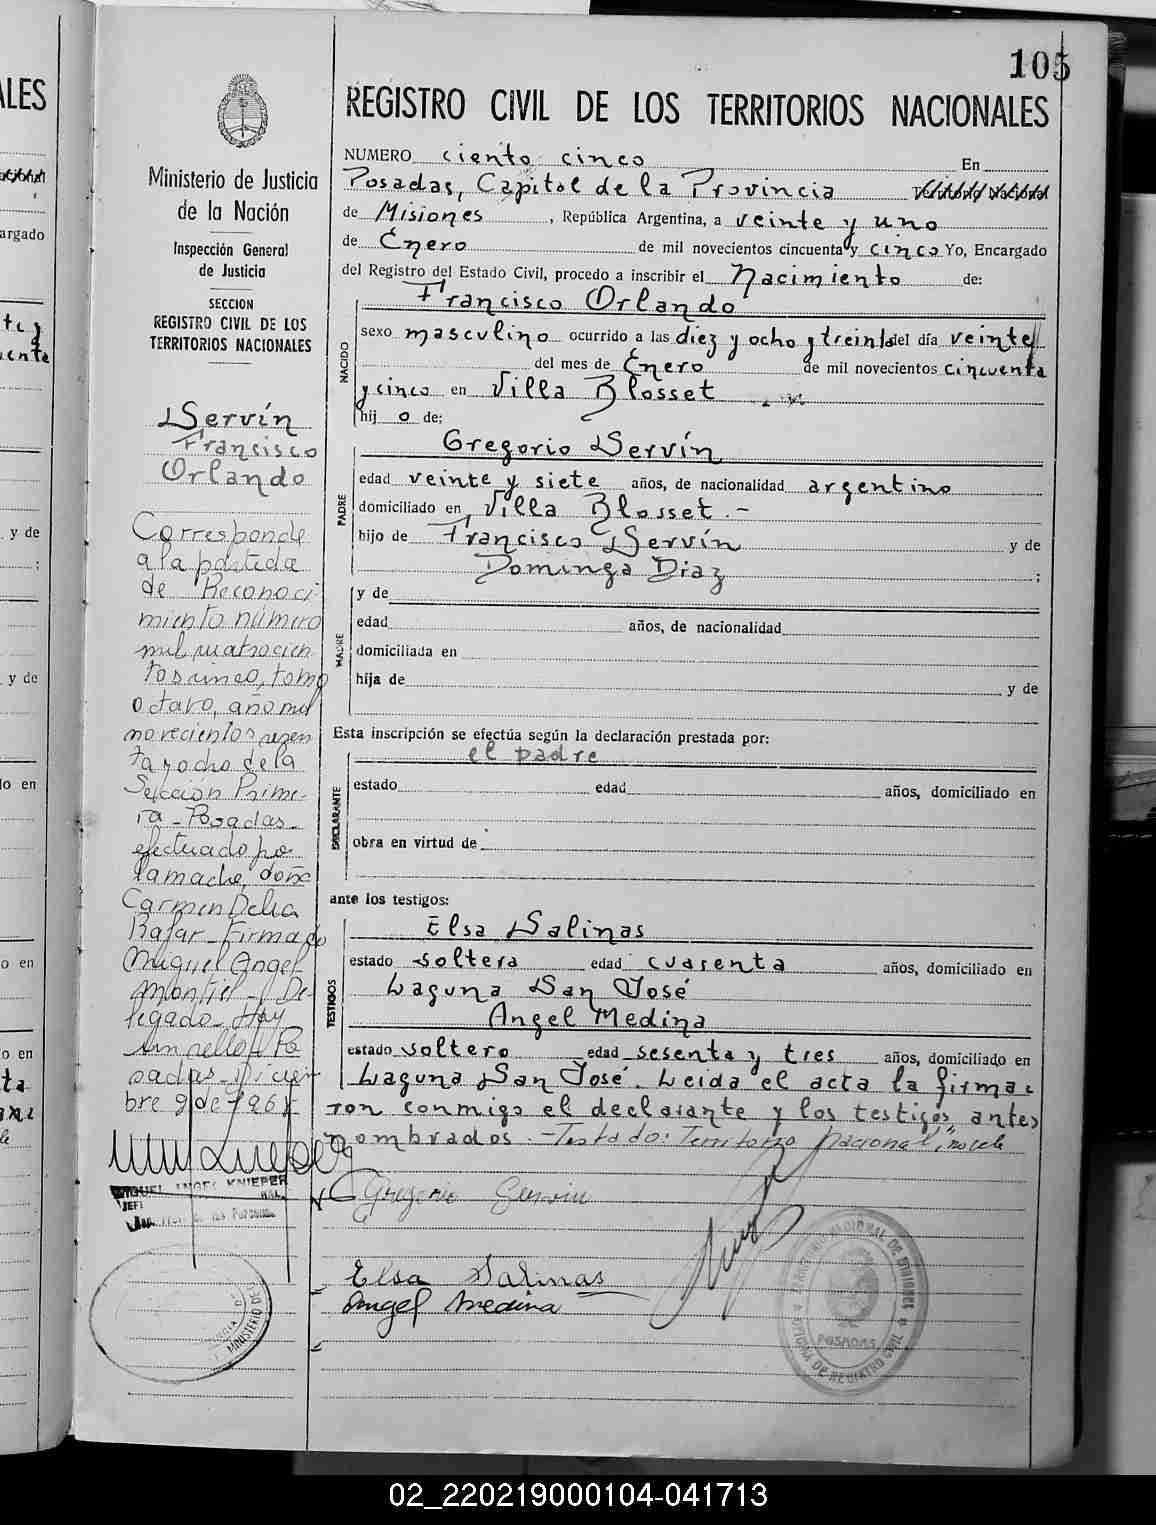 105
REGISTRO CIVIL DE LOS TERRITORIOS NACIONALES
Ministerio de Justicia
de la Nación
Inspección General
de Justicia
SECCION
REGISTRO CIVIL DE LOS
TERRITORIOS NACIONALES
Servín
Francisco
Orlando
Corresponde
a la partida
de Reconoci
miento número
mil cuatrocien
tos cinco, tomo
octavo, año mil
novecientos sesen
ta y ocho de la
Sección Prime-
ra - Posadas -
efectuado po
la madre, doña
Carmen Delia
Firmado
Miguel Angel
Montiel - De-
legado - Hay
un sello - Po
sadas - Diciem
bre 9 de 196
MIGUEL ANGEL KNIEPER
JEFE
NUMERO ciento cinco En
Posadas, Capital de la Provincia
de Misiones, República Argentina, a veinte y uno
de Enero de mil novecientos cincuenta y cinco Yo, Encargado
del Registro del Estado Civil, procedo a inscribir el Nacimiento de:
NACIDO
Francisco Orlando
sexo masculino ocurrido a las diez y ocho y treinta del día veinte
del mes de Enero de mil novecientos cincuenta
y cinco en Villa Blosset
hij o de:
PADRE
Gregorio Servín
edad veinte y siete años, de nacionalidad argentino
domiciliado en Villa Blosset.-
hijo de Francisco Servín y de
Dominga Diaz ;
MADRE
y de
edad años, de nacionalidad
domiciliada en
hija de y de
Esta inscripción se efectúa según la declaración prestada por:
DECLARANTE
el padre
estado edad años, domiciliado en
obra en virtud de
ante los testigos:
TESTIGOS
Elsa Salinas
estado soltera edad cuarenta años, domiciliado en
Laguna San José
Angel Medina
estado soltero edad sesenta y tres años, domiciliado en
Laguna San José. Leida el acta la firma
ron conmigo el declarante y los testigos antes
nombrados. - Testado: Territorio nacional, no vale
Gregorio Servin
Elsa Salinas
Angel Medina
POSADAS
OFICINA DE REGISTRO CIVIL
MINISTERIO DE
ALES
argado
y de
;
y de
o en
o en
o en
02_220219000104-041713